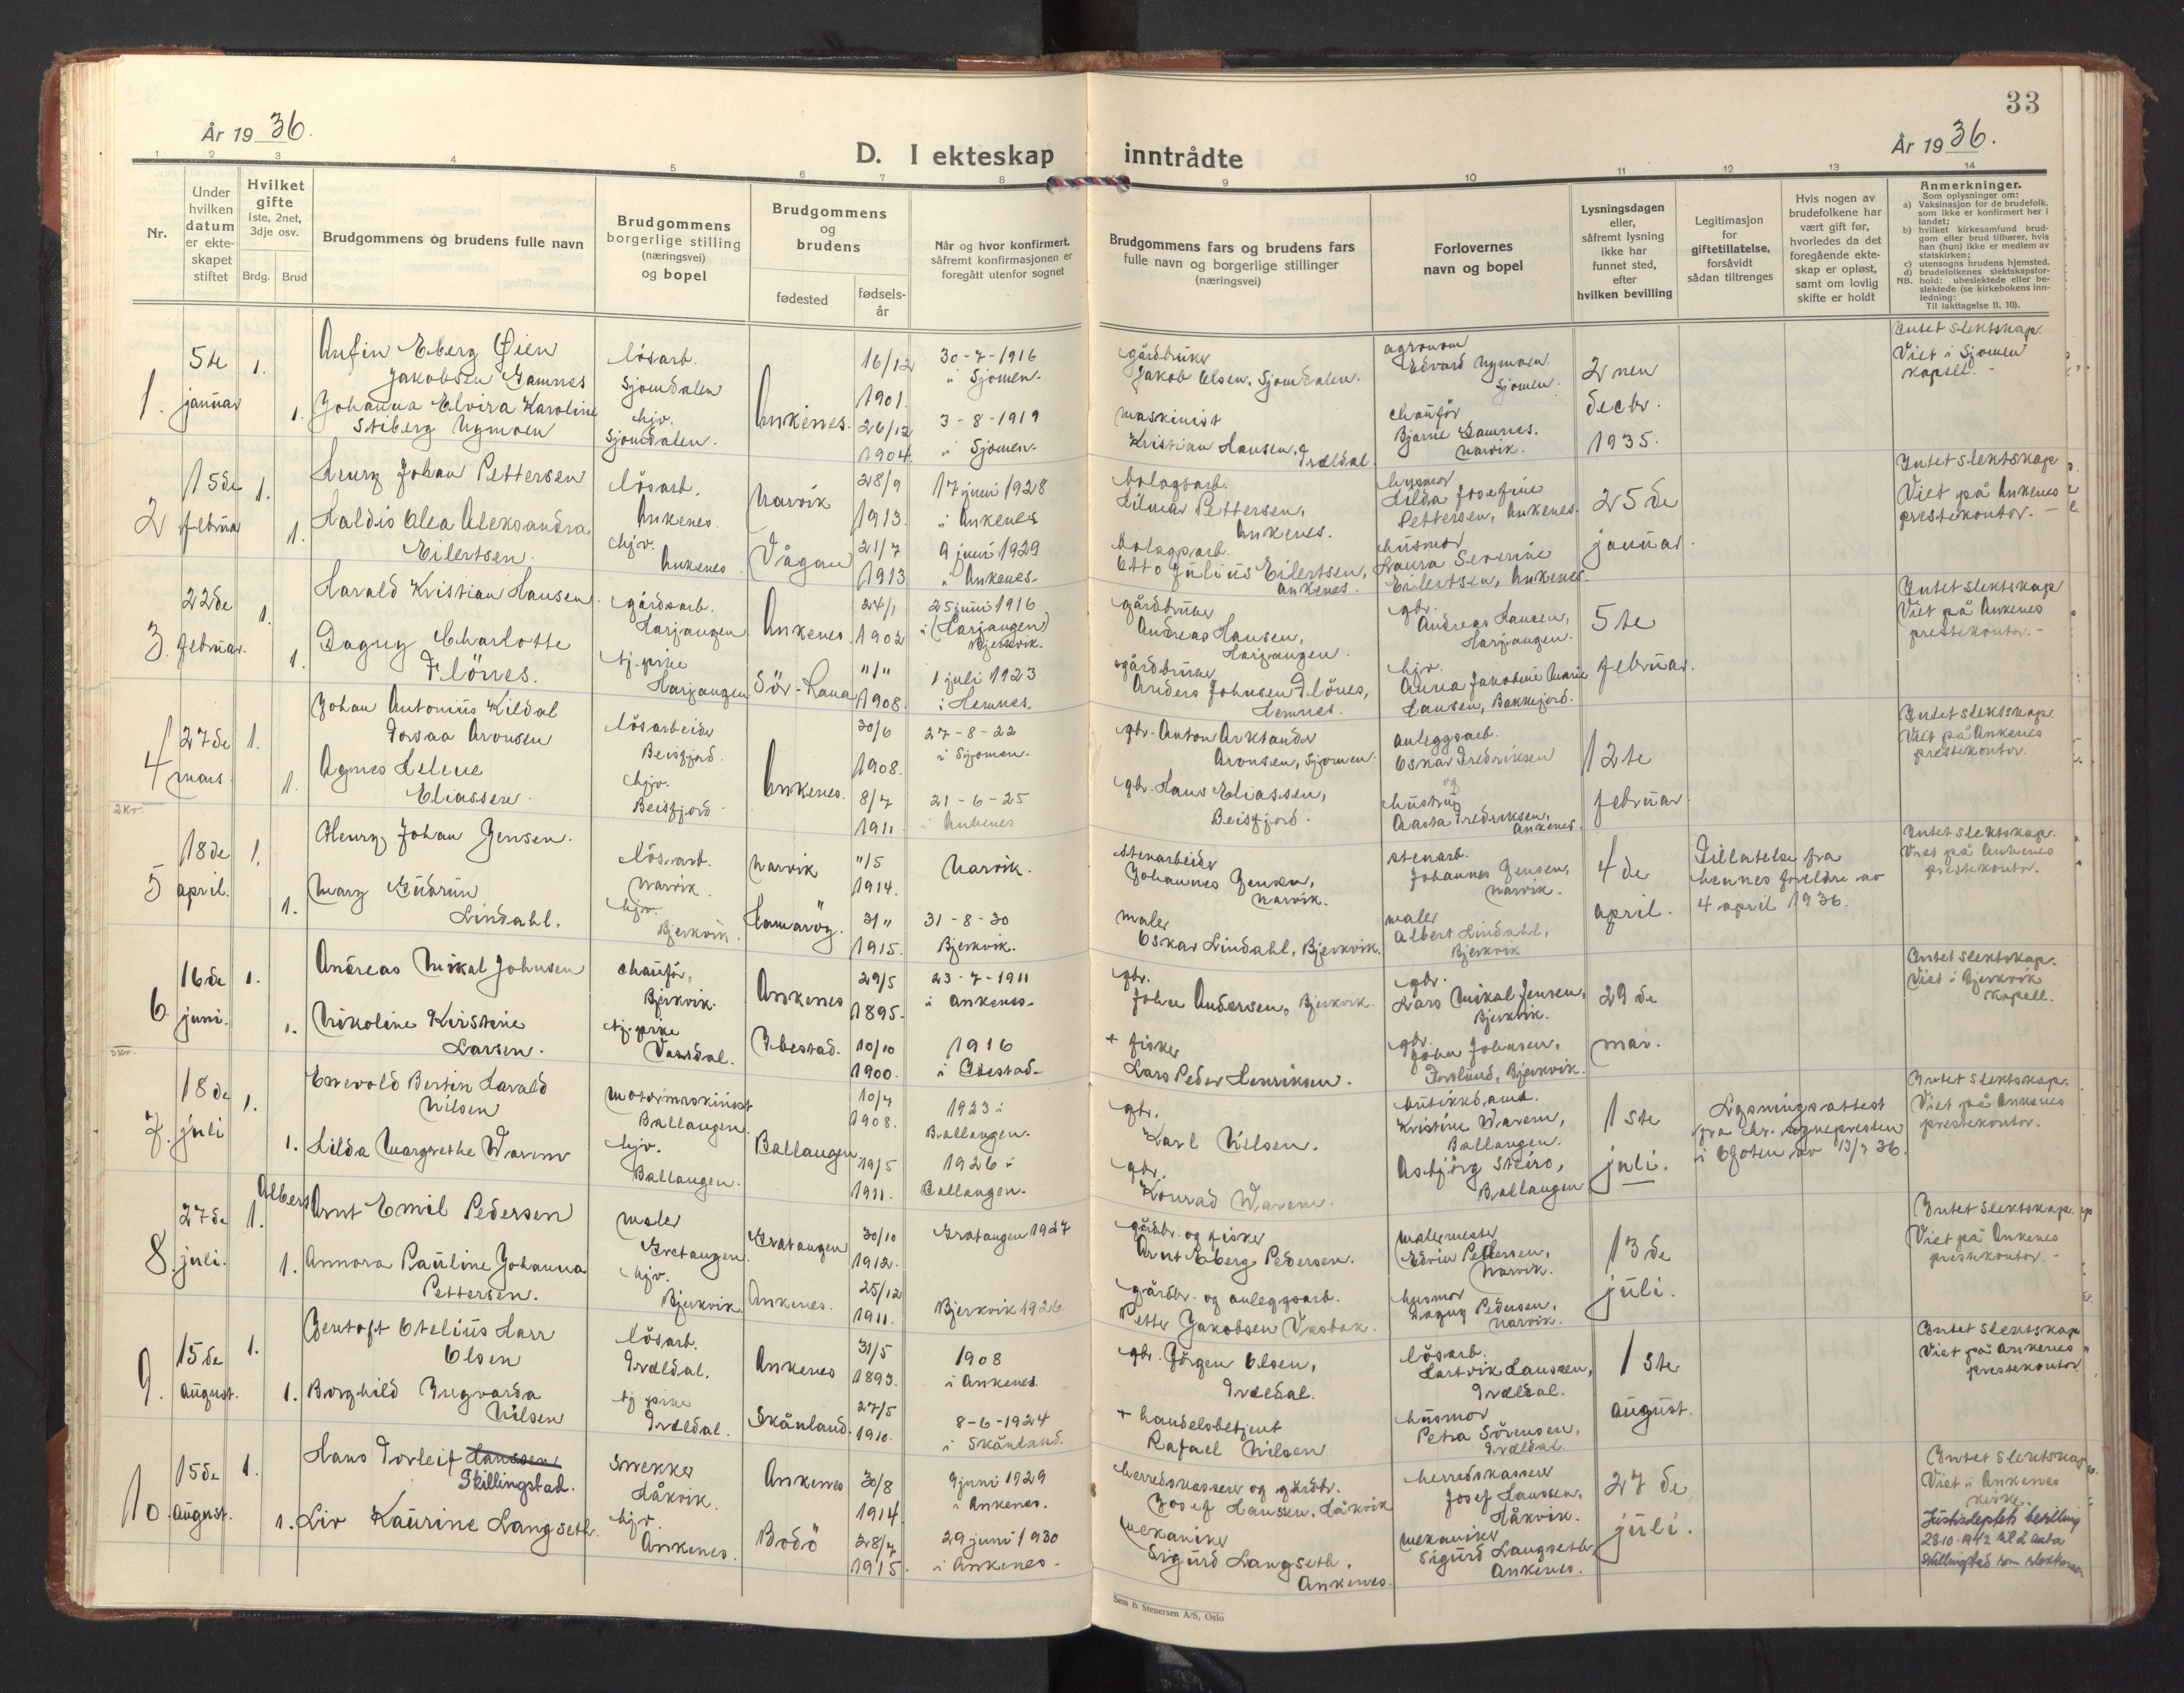 33
År 1936.
År 1936.
D. I ekteskap inntrådte
1 2 3 4 5 6 7 8 9 10 11 12 13 14
Nr.
Under
hvilken
datum
er ekte-
skapet
stiftet
Hvilket
gifte
1ste, 2net,
3dje osv.
Brdg. Brud
Brudgommens og brudens fulle navn
Brudgommens
borgerlige stilling
(næringsvei)
og bopel
Brudgommens
og
brudens
fødested
fødsels-
år
Når og hvor konfirmert,
såfremt konfirmasjonen er
foregått utenfor sognet
Brudgommens fars og brudens fars
fulle navn og borgerlige stillinger
(næringsvei)
Forlovernes
navn og bopel
Lysningsdagen
eller,
såfremt lysning
ikke har
funnet sted,
efter
hvilken bevilling
Legitimasjon
for
giftetillatelse,
forsåvidt
sådan tiltrenges
Hvis nogen av
brudefolkene har
vært gift før,
hvorledes da det
foregående ekte-
skap er opløst,
samt om lovlig
skifte er holdt
Anmerkninger.
Som oplysninger om:
a) Vaksinasjon for de brudefolk,
som ikke er konfirmert her i
landet;
b) hvilket kirkesamfund brud-
gom eller brud tilhører, hvis
han (hun) ikke er medlem av
statskirken;
c) utensogns brudens hjemsted.
d) brudefolkenes slektskapsfor-
NB. hold: ubeslektede eller be-
slektede (se kirkebokens inn-
ledning:
Til iakttagelse II, 10).
1.
5te
januar
1.
1.
Anfin Eberg Øien
Jakobsen Gamnes
Johanna Elvira Karoline
Stiberg Nymoen
lösarb.
Sjomdalen
hjv.
Sjomdalen.
Ankenes.
16/12
1901.
26/12
1904.
30-7-1916
i Sjomen.
3-8-1919
i Sjomen.
gårdbruker
Jakob Olsen, Sjomdalen.
maskinist
Kristian Hansen, Trældal.
agronom
Edvard Nymoen
Sjomen.
chauför
Bjarne Gamnes.
Narvik.
2nen
decbr.
1935.
Intet slektskap.
Viet i Sjomen
kapell.
2
15de
februar
1.
1.
Henry Johan Pettersen
Haldis Olea Aleksandra
Eilertsen.
lösarb.
Ankenes.
hjv.
Ankenes.
Narvik
Vågan
28/9
1913.
21/7
1913
17 juni 1928
i Ankenes
9 juni 1929
i Ankenes.
bolagsarb.
Hilmar Pettersen,
Ankenes.
bolagsarb.
Otto Julius Eilertsen,
Ankenes.
husmor
Hilda Josefine
Pettersen, Ankenes.
husmor
Laura Severine
Eilertsen, Ankenes.
25de
januar.
Intet slektskap
Viet på Ankenes
prestekontor.
3.
22de
februar.
1.
1.
Harald Kristian Hansen.
Dagny Charlotte
Flönes.
gårdsarb.
Harjangen
tj. pike
Harjangen
Ankenes.
Sör-Rana
24/1
1902
"/"
1908.
25 juni 1916
i (Harjangen)
Bjerkvik.
1 juli 1923
i Hemnes.
gårdbruker
Andreas Hansen,
Harjangen.
gårdbruker
Anders Johnsen Flönes,
Hemnes.
gbr.
Andreas Hansen,
Harjangen.
hjv.
Anna Jakobine Marie
Hansen, Bakkejord.
5te
februar.
Intet slektskap
Viet på Ankenes
prestekontor.
4
27de
mars.
1.
1.
2 kr.
Johan Antonius Kildal
Forsaa Aronsen
Agnes Helene
Eliassen.
lösarbeider
Beisfjord.
hjv.
Beisfjord.
Ankenes.
30/6
1908.
8/7
1911.
27-8-22
i Sjomen.
21-6-25
i Ankenes
gbr. Anton Arktander
Aronsen, Sjomen.
gbr. Hans Eliassen,
Beisfjord.
anleggsarb.
Oskar Fredriksen
og
hustru
Aasta Fredriksen,
Ankenes.
12te
februar.
Intet slektskap.
Viet på Ankenes
prestekontor.
5
18de
april.
1.
1.
Henry Johan Jensen.
Mary Gudrun
Lindahl.
lös.arb.
Narvik.
hjv.
Bjerkvik.
Narvik
Hamaröy.
"/5
1914.
31"
1915.
Narvik.
31-8-30
Bjerkvik.
stenarbeider
Johannes Jensen,
Narvik.
maler
Oskar Lindahl, Bjerkvik.
stenarb.
Johannes Jensen,
Narvik.
maler
Albert Lindahl,
Bjerkvik
4de
april.
Tillatelse fra
hennes foreldre av
4 april 1936.
Intet slektskap.
Viet på Ankenes
prestekontor.
6
16de
juni.
1.
1.
3 kr.
Andreas Mikal Johnsen
Nikoline Kristine
Larsen.
chauför,
Bjerkvik.
tj. pike
Vassdal.
Ankenes
Ibestad.
29/5
1895.
10/10
1900.
23-7-1911
i Ankenes.
1916
i Ibestad.
gbr.
Johan Andersen, Bjerkvik.
+ fisker
Lars Peder Henriksen.
gbr.
Lars Mikal Jensen,
Bjerkvik.
gbr.
John Johnsen,
Forslund, Bjerkvik.
29de
mai.
Intet slektskap.
Viet i Bjerkvik
kapell.
7.
18de
juli
1.
1.
Enevold Bertin Harald
Nilsen
Hilda Margrethe Warem
motormaskinist
Ballangen.
hjv.
Ballangen.
Ballangen
10/7
1908.
19/5
1911.
1923 i
Ballangen.
1926 i
Ballangen.
gbr.
Karl Nilsen.
gbr.
Konrad Warem.
butikkb.amb.
Kristine Warem,
Ballangen.
Asbjörg Steiro,
Ballangen
1ste
juli.
Lysningsattest
fra hr. sognepresten
i Ofoten av 13/7 36.
Intet slektskap.
Viet på Ankenes
prestekontor.
8.
27de
juli.
1.
1.
Albert
Arnt Emil Pedersen
Annora Pauline Johanna
Pettersen.
maler
Gratangen.
hjv.
Bjerkvik
Gratangen
Ankenes.
30/10
1912.
25/12
1911.
Gratangen 1927
Bjerkvik 1926.
gårdbr. og fisker
Arnt Eberg Pedersen.
gårdbr. og anleggsarb.
Petter Jakobsen Vasbak.
malermester
Edvin Pettersen,
Narvik.
husmor
Dagny Pedersen,
Narvik.
13de
juli.
Intet slektskap.
Viet på Ankenes
prestekontor.
9.
15de
august.
1.
1.
Gerhoft Otelius Harr
Olsen
Borghild Ingvarda
Nilsen
lösarb.
Trældal.
tj pike
Trældal.
Ankenes
Skånland.
31/5
1893.
27/5
1910.
1908
i Ankenes.
8-6-1924
i Skånland.
gbr. Jörgen Olsen,
Trældal.
+ handelsbetjent
Rafael Nilsen
lösarb.
Hartvik Hanssen,
Trældal.
husmor
Petra Sörensen,
Trældal.
1ste
august.
Intet slektskap
Viet på Ankenes
prestekontor
10.
15de
august.
1.
1.
Hans Torleif Hanssen
Skillingstad.
Liv Kaurine Langseth.
snekker
Håkvik.
hjv.
Ankenes.
Ankenes
Bodö
30/8
1914.
28/7
1915.
9 juni 1929
i Ankenes.
29 juni 1930
i Ankenes.
herredskasserer og gårdbr.
Josef Hansen, Håkvik
mekaniker
Sigurd Langseth,
Ankenes.
herredskasserer
Josef Hanssen,
Håkvik.
mekaniker
Sigurd Langseth,
Ankenes.
27de
juli.
Intet slektskap.
Viet i Ankenes
kirke.
Justisdeptets bevilling
28.10.1942 til å anta
Skillingstad som slektsnavn
Sem & Stenersen A/S, Oslo